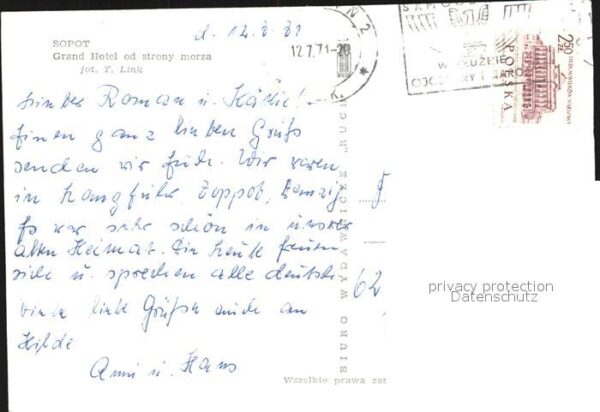 d. 12.7.71
SOPOT
Grand Hotel od strony morza
fot. T. Link
12.7.71-20
N 2
W SŁUŻBIE
OJCZYZNY
2,50 ZŁ
POLSKA
Lieber Roman u. Käthe!
Einen ganz lieben Gruß
senden wir Euch. Wir waren
in Langfuhr, Zoppot, Danzig
Es war sehr schön in unserer
alten Heimat. Die Leute freuen
sich u. sprechen alle deutsch
viele liebe Grüße auch an
Hilde
Anni u. Hans
62
BIURO WYDAWNICZE „RUCH”
Wszelkie prawa zas
privacy protection
Datenschutz